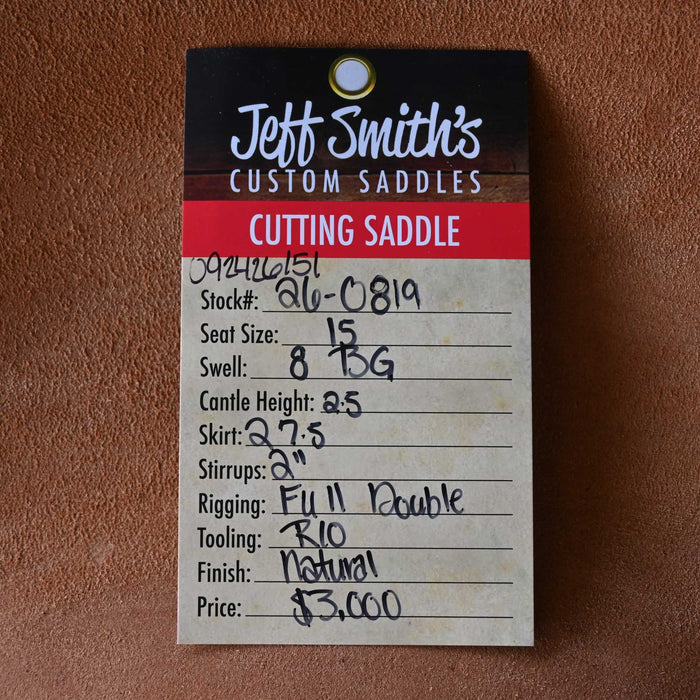 Jeff Smith's
CUSTOM SADDLES
CUTTING SADDLE
092426151
Stock#: 26-0819
Seat Size: 15
Swell: 8 BG
Cantle Height: 2.5
Skirt: 27.5
Stirrups: 2"
Rigging: Full Double
Tooling: R10
Finish: Natural
Price: $3,000